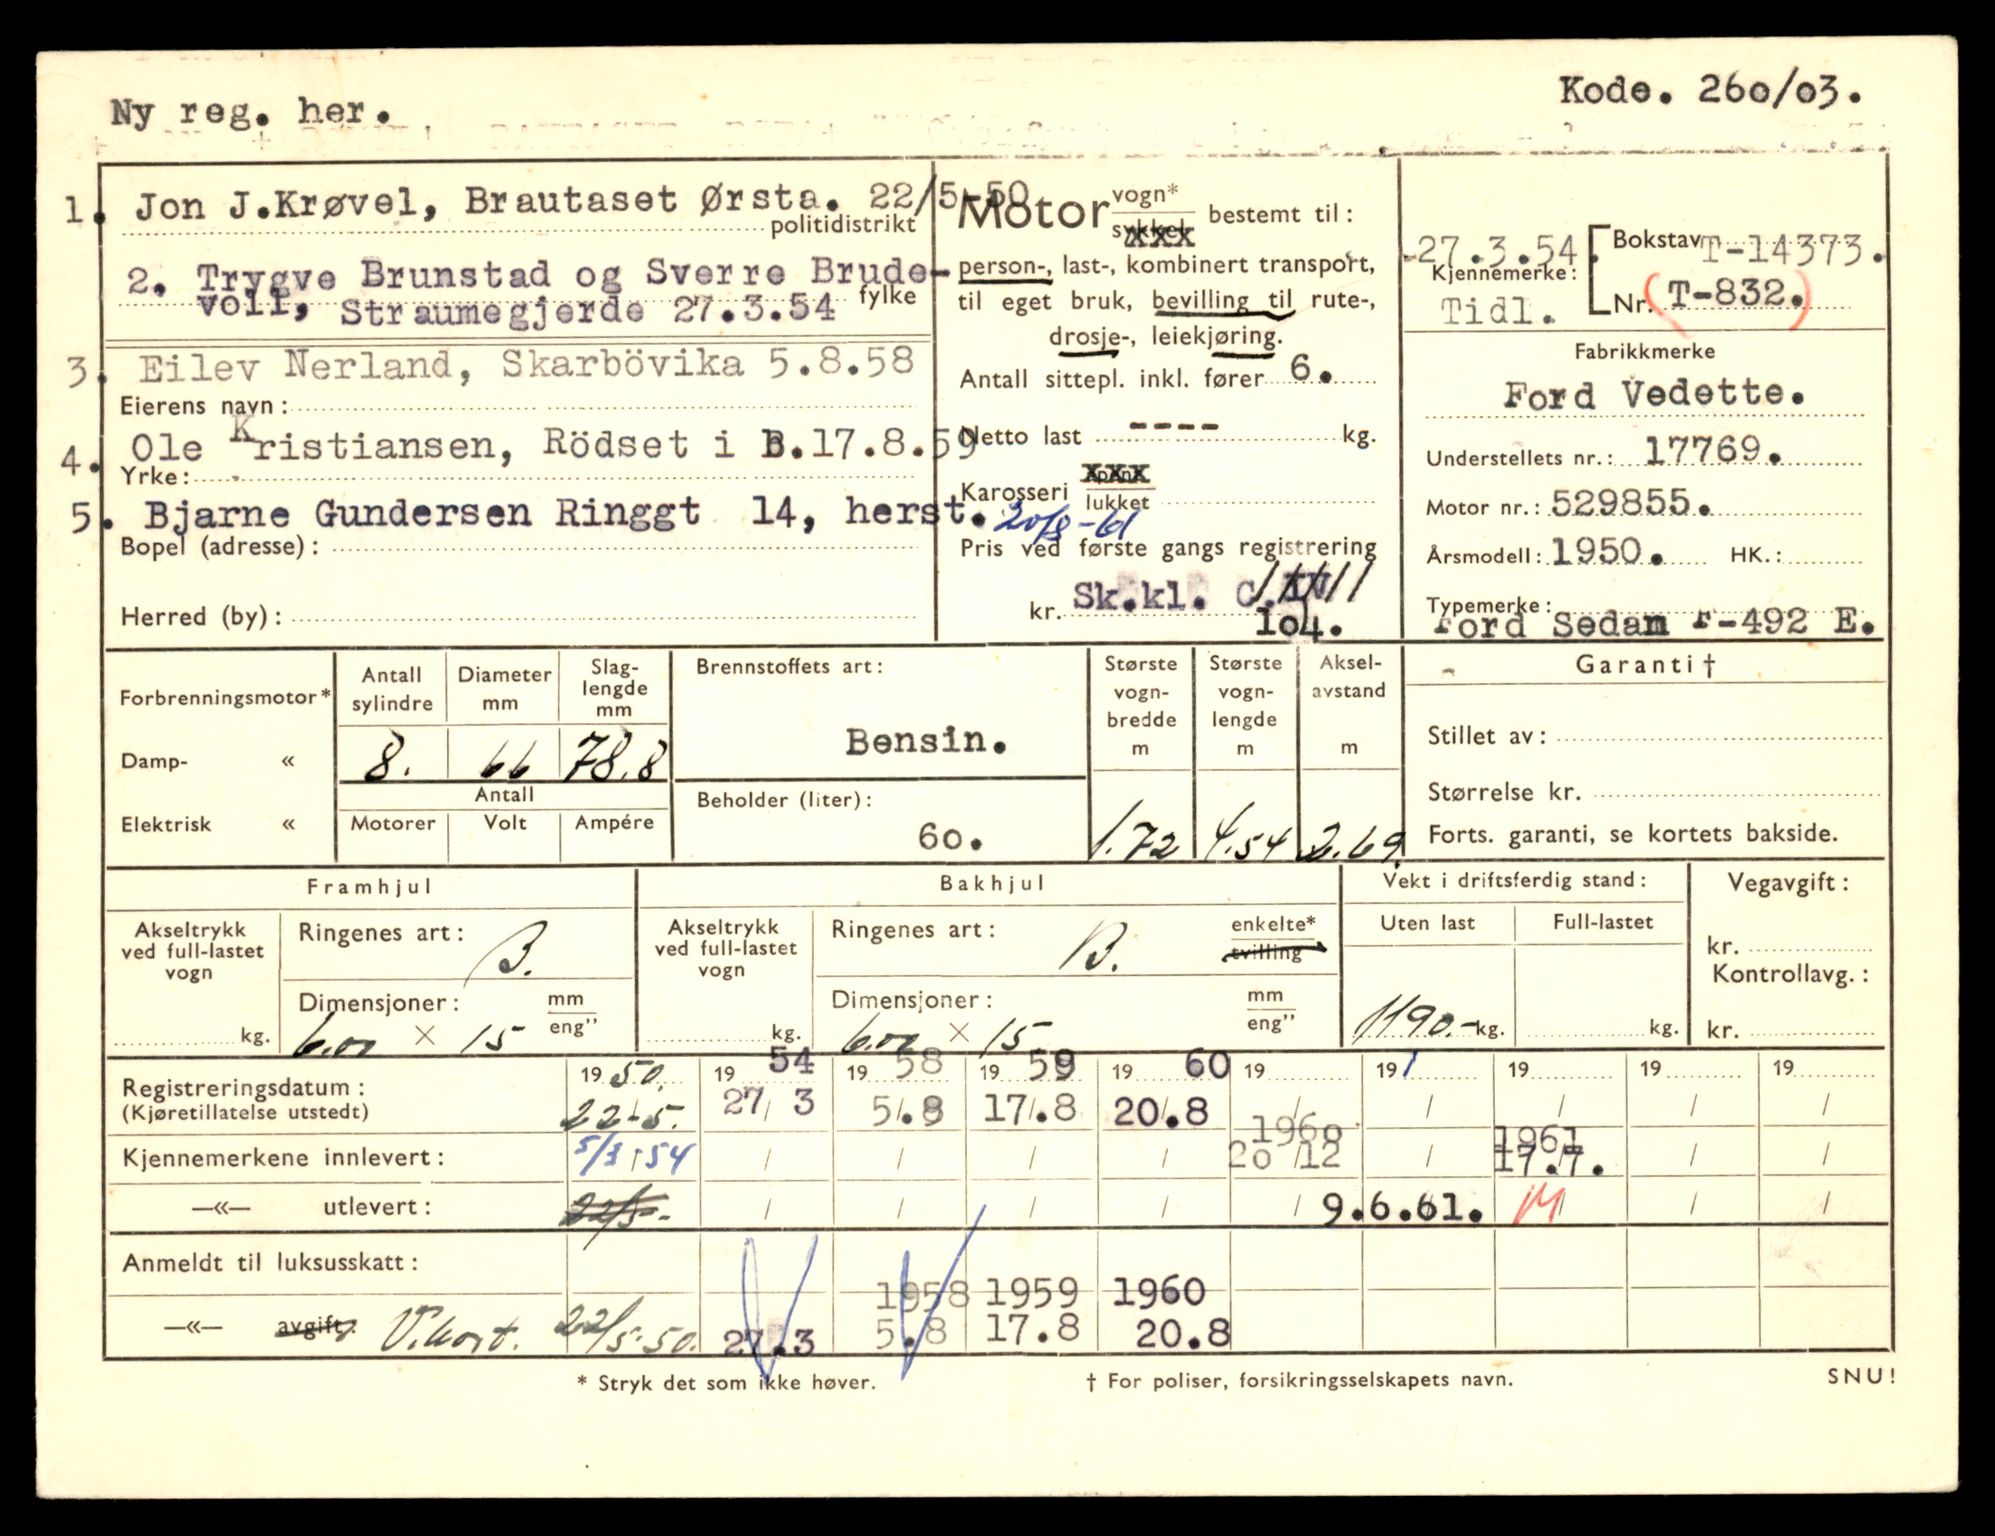 Ny reg. her.
Kode. 260/03.
1. Jon J.Krøvel, Brautaset Ørsta. 22/5-50
politidistrikt
2. Trygve Brunstad og Sverre Brude-
voll, Straumegjerde 27.3.54
fylke
3. Eilev Nerland, Skarbövika 5.8.58
Eierens navn:
4. Ole Kristiansen, Rödset i B.17.8.59
Yrke:
5. Bjarne Gundersen Ringgt 14, herst. 20/8-61
Bopel (adresse):
Herred (by):
Motor vogn*
sykkel bestemt til:
person-, last-, kombinert transport,
til eget bruk, bevilling til rute-,
drosje-, leiekjøring.
Antall sittepl. inkl. fører 6.
Netto last ---- kg.
Karosseri åpen
lukket
Pris ved første gangs registrering
kr. Sk.kl. C.
104.
27.3.54. Bokstav T-14373.
Kjennemerke:
Tidl. Nr. (T-832.)
Fabrikkmerke
Ford Vedette.
Understellets nr.: 17769.
Motor nr.: 529855.
Årsmodell: 1950. HK.:
Typemerke:
Ford Sedan F-492 E.
Forbrenningsmotor*
Damp- «
Elektrisk «
Antall sylindre
Diameter mm
Slag-lengde mm
8. 66 78.8
Antall
Motorer Volt Ampére
Brennstoffets art:
Bensin.
Beholder (liter):
60.
Største vogn-bredde m
Største vogn-lengde m
Aksel-avstand m
1.72 4.54 2.69.
Garanti†
Stillet av:
Størrelse kr.
Forts. garanti, se kortets bakside.
Framhjul
Akseltrykk ved full-lastet vogn
kg.
Ringenes art: B.
Dimensjoner: mm
6.00 × 15 eng”
Bakhjul
Akseltrykk ved full-lastet vogn
kg.
Ringenes art: B. enkelte*
tvilling
Dimensjoner: mm
6.00 × 15 eng”
Vekt i driftsferdig stand:
Uten last Full-lastet
1190.- kg. kg.
Vegavgift:
kr.
Kontrollavg.:
kr.
Registreringsdatum: 19 50. 19 54 19 58 19 59 19 60 19 19 1 19 19 19
(Kjøretillatelse utstedt) 22-5. 27/3 5.8 17.8 20.8 / / / / /
Kjennemerkene innlevert: 5/3-54 / / / / 1960 20/12 / 1961 17.7. / /
—«— utlevert: 22/5- / / / / / 9.6.61. M / /
Anmeldt til luksusskatt:
1958 1959 1960
—«— avgift: V.kort. 22/5-50. 27.3 5.8 17.8 20.8
* Stryk det som ikke høver.
† For poliser, forsikringsselskapets navn.
SNU!